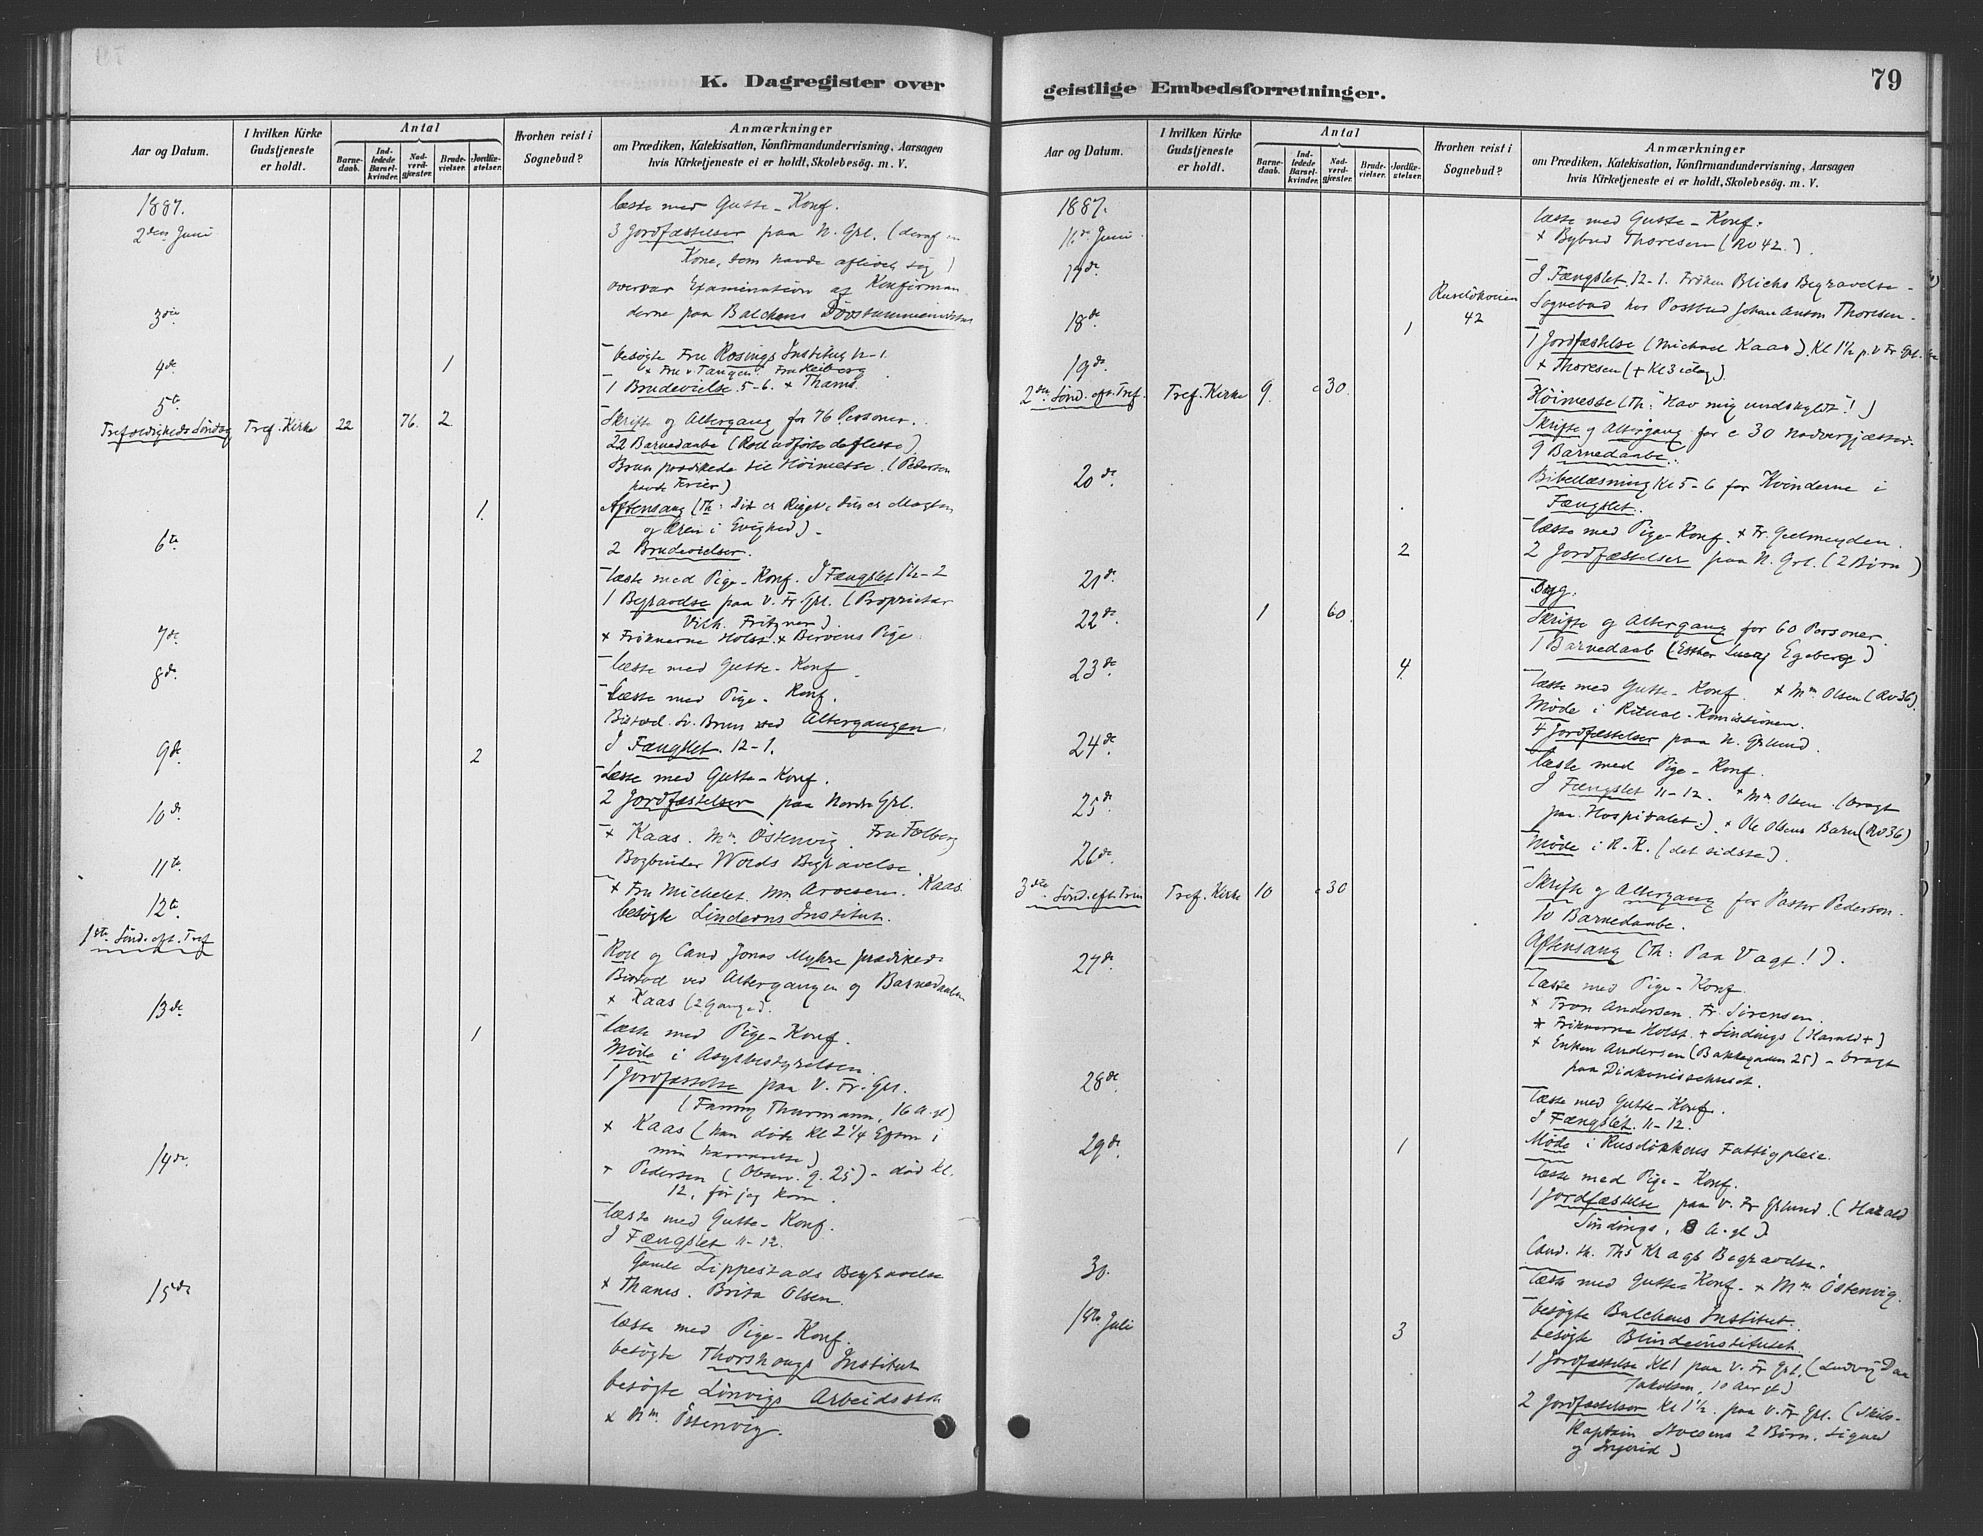 K. Dagregister over
Aar og Datum.
I hvilken Kirke Gudstjeneste er holdt.
Antal
Barnedaab.
Indledede Barselkvinder.
Nadverdgjæster.
Brudevielser.
Jordfæstelser.
Hvorhen reist i Sognebud?
Anmærkninger
om Prædiken, Katekisation, Konfirmandundervisning, Aarsagen
hvis Kirketjeneste ei er holdt, Skolebesøg. m. V.
1887.
2den Juni
læste med Gutte-Konf.
3 Jordfæstelser paa N. Grl. (deraf en
Kone, som havde aflivet sig)
3die
overvar Examination af Konfirman-
derne paa Balchens
4de 1
besøgte Fru Rosings Institut 12-1.
+ Fru v Tangen. Fru Heiberg
1 Brudevielse 5-6. + Thams.
5te
Trefoldigheds Søndag Tref. Kirke 22 76. 2.
Skrifte og Altergang for 76 Personer.
22 Barnedaabe (Roll udførte de fleste)
Brun prædikede til Høimesse. (Pedersen
havde Ferier)
Aftensang (Th: Dit er Riget, Din er Magten
og Æren i Evighed).
2 Brudevielser.
6te 1.
læste med Pige-Konf. I Fængslet 1½-2
1 Begravelse paa V. Fr. Grl. (Proprietær
Vilh. Fritzner)
+ Frøknerne Holst. + Pige.
7de
læste med Gutte-Konf.
8de
læste med Pige-Konf.
Bistod Brun ved Altergangen.
I Fængslet. 12-1.
9de 2
Læste med Gutte-Konf.
2 Jordfæstelser paa Nordre Grl.
10de
+ Kaas. Mm Østenvig. Fru
Bogbinder Begravelse.
11te
+ Fru Michelet. Mm Kaas
besøgte Institut.
12te
1ste Sønd. eft. Tref
Roll og Cand Jonas Myhre prædikede
Bistod ved Altergangen og Barnedaaben
+ Kaas (2 Gange).
13de 1
læste med Pige-Konf.
Møde i Asylbestyrelsen.
1 Jordfæstelse paa V. Fr. Grl.
(Fanny Thurmann, 16 A. gl)
+ Kaas (han døde Kl 2¼ Efterm i
min Nærværelse)
+ Pedersen (Observ. g. 25) - død Kl.
12, før jeg kom.
14de
læste med Gutte-Konf.
I Fængslet 11-12.
Gamle Lippestads Begravelse
+ Thams. Brita Olsen.
15de
læste med Pige-Konf.
besøgte Thorshaugs Institut
besøgte Arbeidsskole
+ Mm. Østenvig.
geistlige Embedsforretninger.
79
Aar og Datum.
I hvilken Kirke Gudstjeneste er holdt.
Antal
Barnedaab.
Indledede Barselkvinder.
Nadverdgjæster.
Brudevielser.
Jordfæstelser.
Hvorhen reist i Sognebud?
Anmærkninger
om Prædiken, Katekisation, Konfirmandundervisning, Aarsagen
hvis Kirketjeneste ei er holdt, Skolebesøg. m. V.
1887.
16de Juni
læste med Gutte-Konf.
+ Bybud Thoresen (Rv 42.)
17de Ruseløkveien 42
I Fængslet 12-1. Frøken Blichs Begravelse
Sognebud hos Postbud Johan Anton Thoresen.
18de 1
1 Jordfæstelse (Michael Kaas) Kl 1½ p. V Fr Grl.
+ Thoresen (+ Kl 3 idag)
19de
2den Sønd. eft. Tref. Tref. Kirke 9. c 30.
Høimesse (Th: "Hav mig undskyldt"!)
Skrifte og Altergang for c 30 Nadvergjæster.
9 Barnedaabe.
Bibellæsning Kl 5-6 for Kvinderne i
Fængslet.
20de 2
læste med Pige-Konf. + Fr. Geelmuyden.
2 Jordfæstelser paa N. Grl. (2 Børn)
21de
Syg.
22de 1 60.
Skrifte og Altergang for 60 Personer.
1 Barnedaab (Esther Lucy Egeberg)
23de 4
læste med Gutte-Konf. + Mm Olsen (Rv 36).
Møde i Ritual-Komissionen.
4 Jordfæstelser paa N. Grlund.
24de
læste med Pige-Konf.
I Fængslet 11-12. + Mm Olsen. (bragt
paa Hospitalet.) + Ole Olsens Barn (Rv 36)
25de
Møde i R.-K. (det sidste).
26de
3die Sønd. eft. Trin Tref. Kirke 10 c 30
Skrifte og Altergang for Pastor Pedersen.
10 Barnedaabe.
Aftensang (Th: Paa Vagt!).
27de
læste med Pige-Konf.
+ Tron Andersen. Fr. Sørensen.
+ Frøknerne Holst. + Sindings (Harald +)
+ Enken Andersen (Bakkegaden 25) - bragt
paa Diakonissehuset.
28de
læste med Gutte-Konf.
I Fængslet. 11-12.
Møde i Ruseløkkens Fattigpleie.
29de 1
læste med Pige-Konf.
1 Jordfæstelse paa V. Fr Grlund. (Harald
Sindings, 8 A. gl).
Cand. th. Ths Kraghs Begravelse.
30.
læste med Gutte-Konf. + Mm Østenvig.
1ste Juli 3
besøgte Balchens Institut.
besøgte Blindeinstitutet
1 Jordfæstelse Kl 1 paa V. Fr Grl. (Ludvig Daa
Jakobsen, 10 Aar gl)
2 Jordfæstelser Kl 1½ paa V. Fr Grl. (Skibs-
Kaptein 2 Børn. Sigurd
og Ingerid)